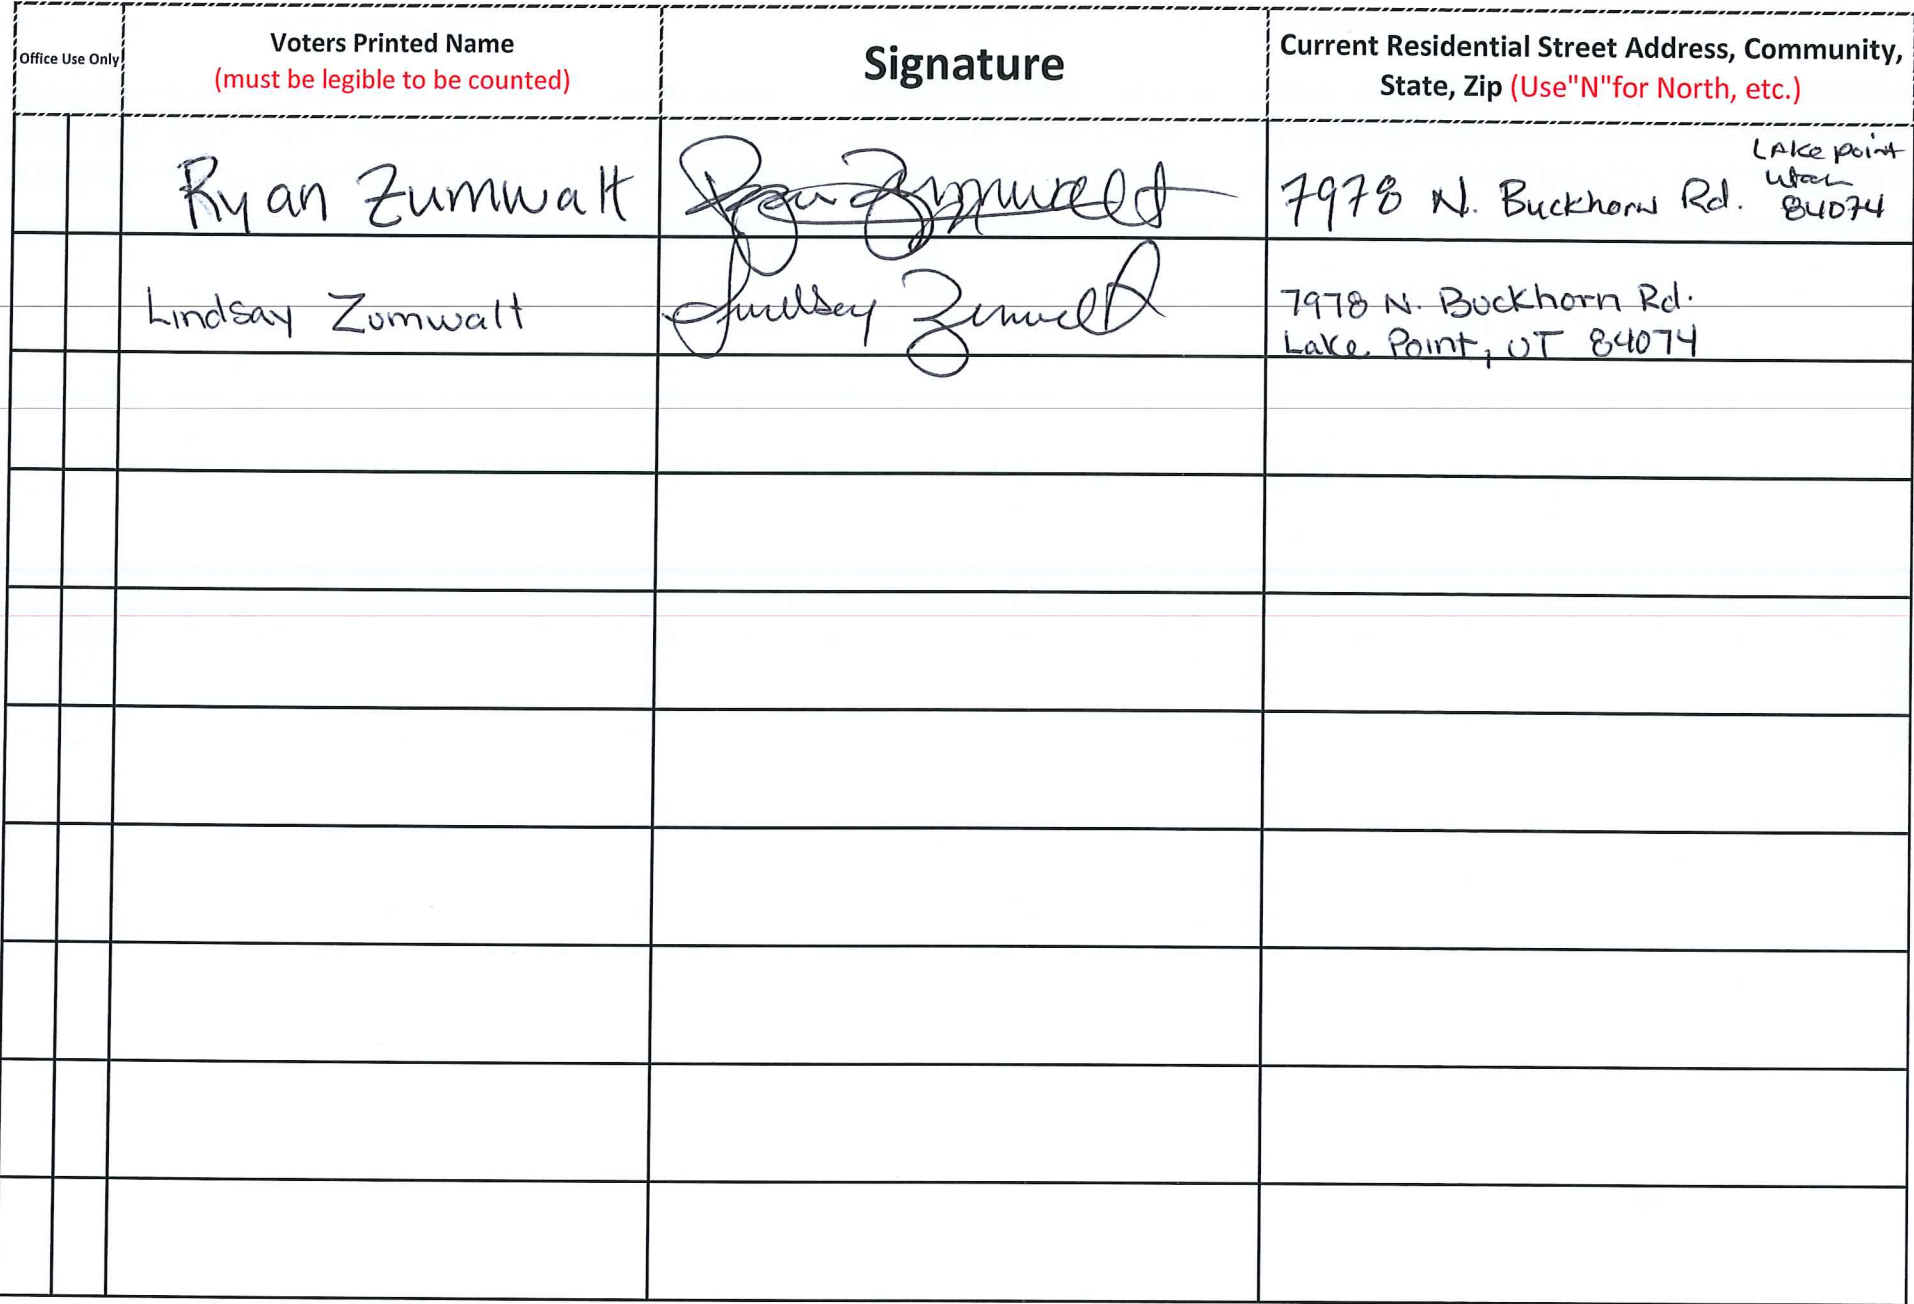 Office Use Only
Voters Printed Name
(must be legible to be counted)
Signature
Current Residential Street Address, Community,
State, Zip (Use"N"for North, etc.)
Ryan Zumwalt
Ryan Zumwalt
7978 N. Buckhorn Rd.
LAke point
utah
84074
Lindsay Zumwalt
Lindsay Zumwalt
7978 N. Buckhorn Rd.
Lake Point, UT 84074